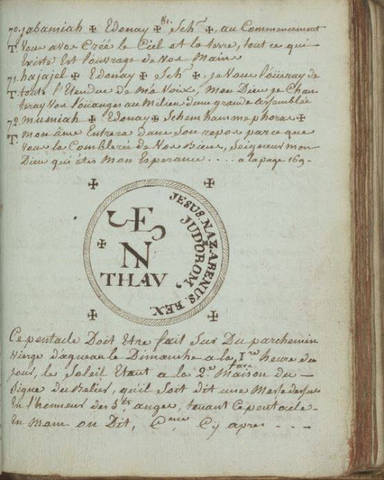 70. jabamiah ✠ Edonay ✠ Sch.ᵐ, au Commencement
T. Vous avés Créé le Ciel et la terre, tout ce qui
Existe Est l'ouvrage de Vos Mains
71. hajajel ✠ Edonay ✠ Sch.ᵐ, je Vous loüeray de
T. toute l'Etendue de Ma Voix, Mon Dieu je Chan-
teray Vos loüanges au Milieu d'une grande assemblée
72. mumiah ✠ Edonay ✠ Schemhammephoras ✠
T. Mon âme Entrera Dans Son repos parce que
Vous la Comblerés de Vos Biens, Seigneur mon
Dieu qui étes Mon Esperance . . . . a la page 169.
N
THAV
JESUS, NAZARENUS, REX
JUDOROM,
Ce pentacle Doit Etre fait Sur Du parchemin
Vierge le Dimanche a la 1.re heure du
jour, le Soleil Etant a la 2.e Maison du
Signe du Belier, qu'il Soit dit une Messe
En l'honneur des anges, tenant Ce pentacle
En Main on Dit, Cy apres . . .